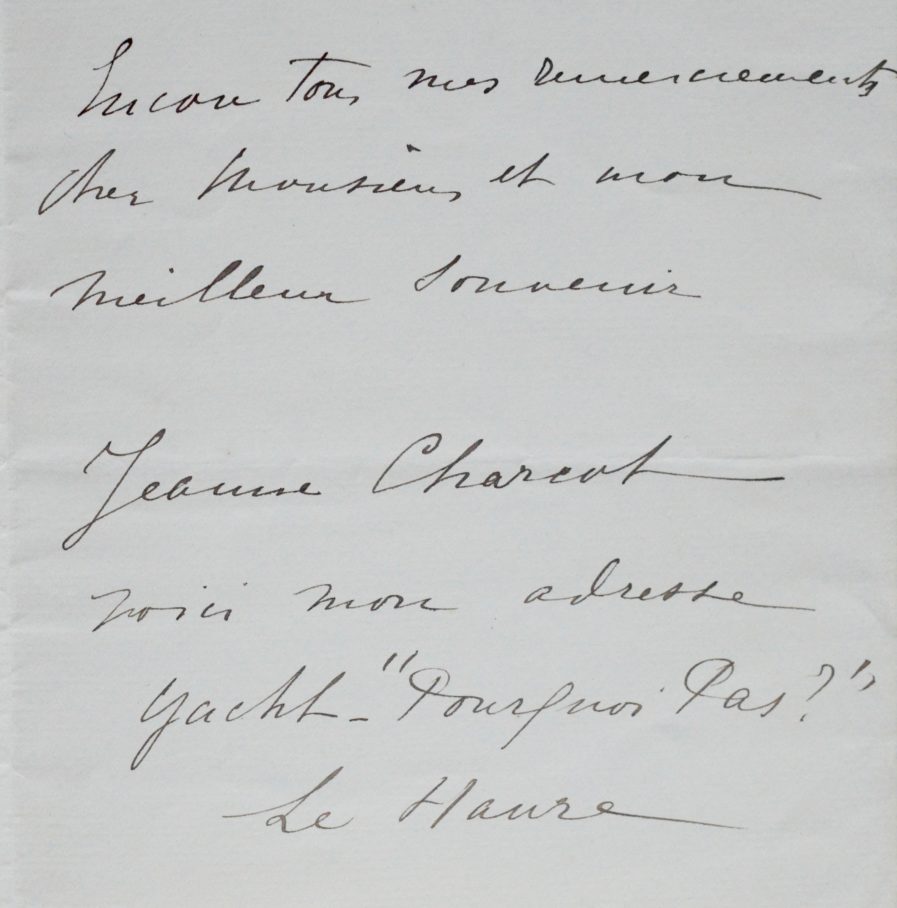 Encore tous mes remerciements
cher Monsieur, et mon
meilleur souvenir
Jeanne Charcot
voici mon adresse
yacht - "Pourquoi Pas?"
Le Havre